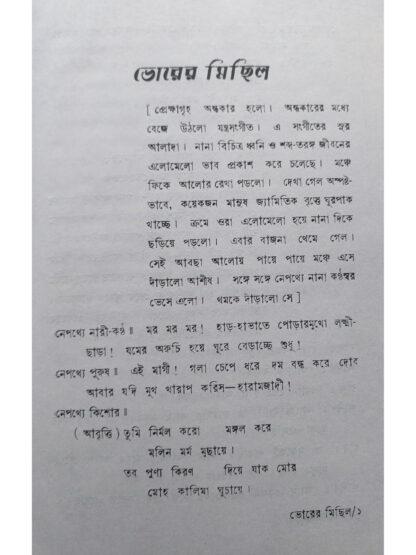 ভোরের মিছিল
[ প্রেক্ষাগৃহ অন্ধকার হলো। অন্ধকারের মধ্যে
বেজে উঠলো যন্ত্রসংগীত। এ সংগীতের সুর
আলাদা। নানা বিচিত্র ধ্বনি ও শব্দ-তরঙ্গ জীবনের
এলোমেলো ভাব প্রকাশ করে চলেছে। মঞ্চে
ফিকে আলোর রেখা পড়লো। দেখা গেল অস্পষ্ট-
ভাবে, কয়েকজন মানুষ জ্যামিতিক বৃত্তে ঘুরপাক
খাচ্ছে। ক্রমে ওরা এলোমেলো হয়ে নানা দিকে
ছড়িয়ে পড়লো। এবার বাজনা থেমে গেল।
সেই আবছা আলোয় পায়ে পায়ে মঞ্চে এসে
দাঁড়ালো আশীষ। সঙ্গে সঙ্গে নেপথ্যে নানা কণ্ঠস্বর
ভেসে এলো। থমকে দাঁড়ালো সে ]
নেপথ্যে নারী-কণ্ঠ॥ মর মর মর! হাড়-হাভাতে পোড়ারমুখো লক্ষ্মী-
ছাড়া! যমের অরুচি হয়ে ঘুরে বেড়াচ্ছে শুধু!
নেপথ্যে পুরুষ॥ এই মাগী! গলা চেপে ধরে দম বন্ধ করে দোব
আবার যদি মুখ খারাপ করিস—হারামজাদী!
নেপথ্যে কিশোর॥
(আবৃত্তি) তুমি নির্মল করো মঙ্গল করে
মলিন মর্ম মুছায়ে।
তব পুণ্য কিরণ দিয়ে যাক মোর
মোহ কালিমা ঘুচায়ে।
ভোরের মিছিল/১